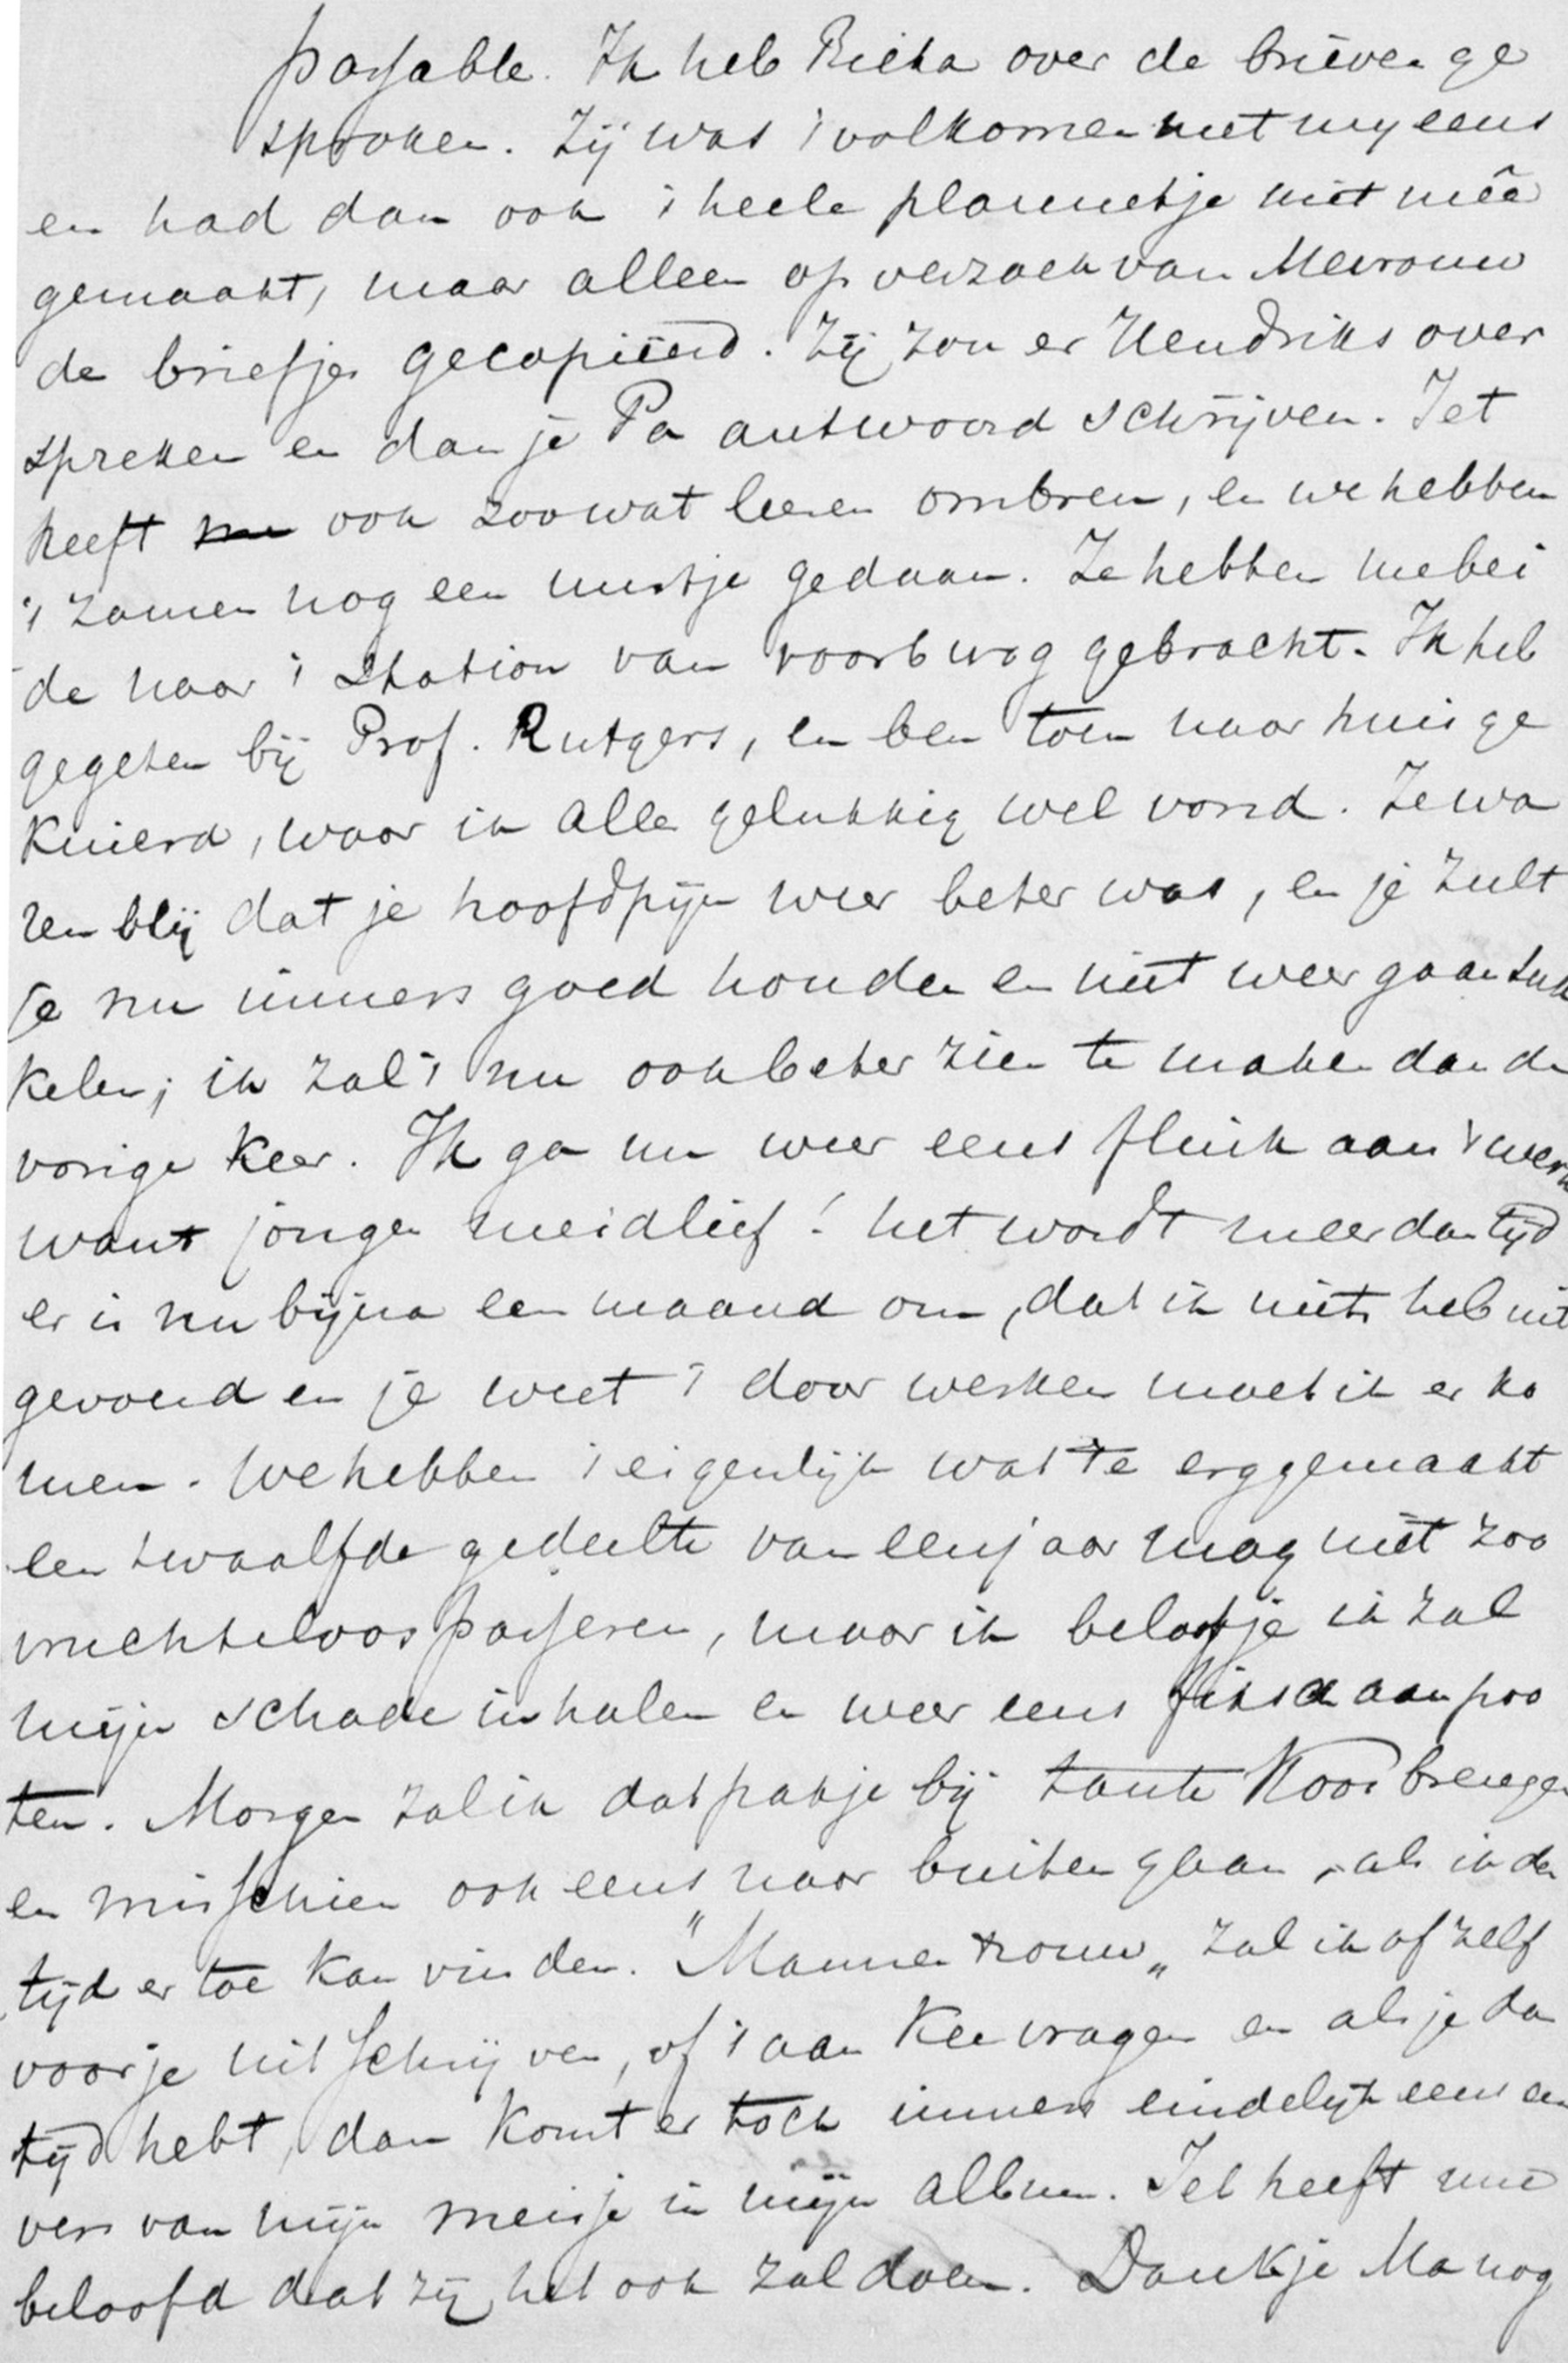 passable. Ik heb Rieka over de brieven ge
sproken. Zij was 't volkomen met mij eens
en had dan ook 't heele plannetje niet mêe
gemaakt, maar alleen op verzoek van Mevrouw
de briefjes gecopiëerd. Zij zou er Hendriks over
spreken en dan je Pa antwoord schrijven. Jet
heeft nu ook zoowat leeren ombren, en we hebben
't zamen nog een uurtje gedaan. Ze hebben me bei
de naar 't station van voorburg gebracht. Ik heb
gegeten bij Prof. Rutgers, en ben toen naar huis ge
kuierd, waar ik alles gelukkig wel vond. Ze wa
ren blij dat je hoofdpijn weer beter was, en je zult
je nu immers goed houden en niet weer gaan suk
kelen; ik zal 't nu ook beter zien te maken dan de
vorige keer. Ik ga nu weer eens flink aan 't werk
want jonge meidlief! het wordt meer dan tijd
er is nu bijna een maand om, dat ik niets heb uit
gevoerd en je weet 't door werken moet ik er ko
men. We hebben 't eigenlijk wat te erg gemaakt
een twaalfde gedeelte van een jaar mag niet zoo
vruchteloos passeren, maar ik beloof je ik zal
mijn schade inhalen en weer eens fiksch aanpoo
ten. Morgen zal ik dat pakje bij tante Koos brengen
en misschien ook eens naar buiten gaan, als ik de
tijd er toe kan vinden. "Mannentrouw„ zal ik of zelf
voor je uitschrijven, of 't aan Kee vragen en als je dan
tijd hebt, dan komt er toch immers eindelijk eens een
vers van mijn meisje in mijn album. Jet heeft mij
beloofd dat zij het ook zal doen. Dank je Ma nog